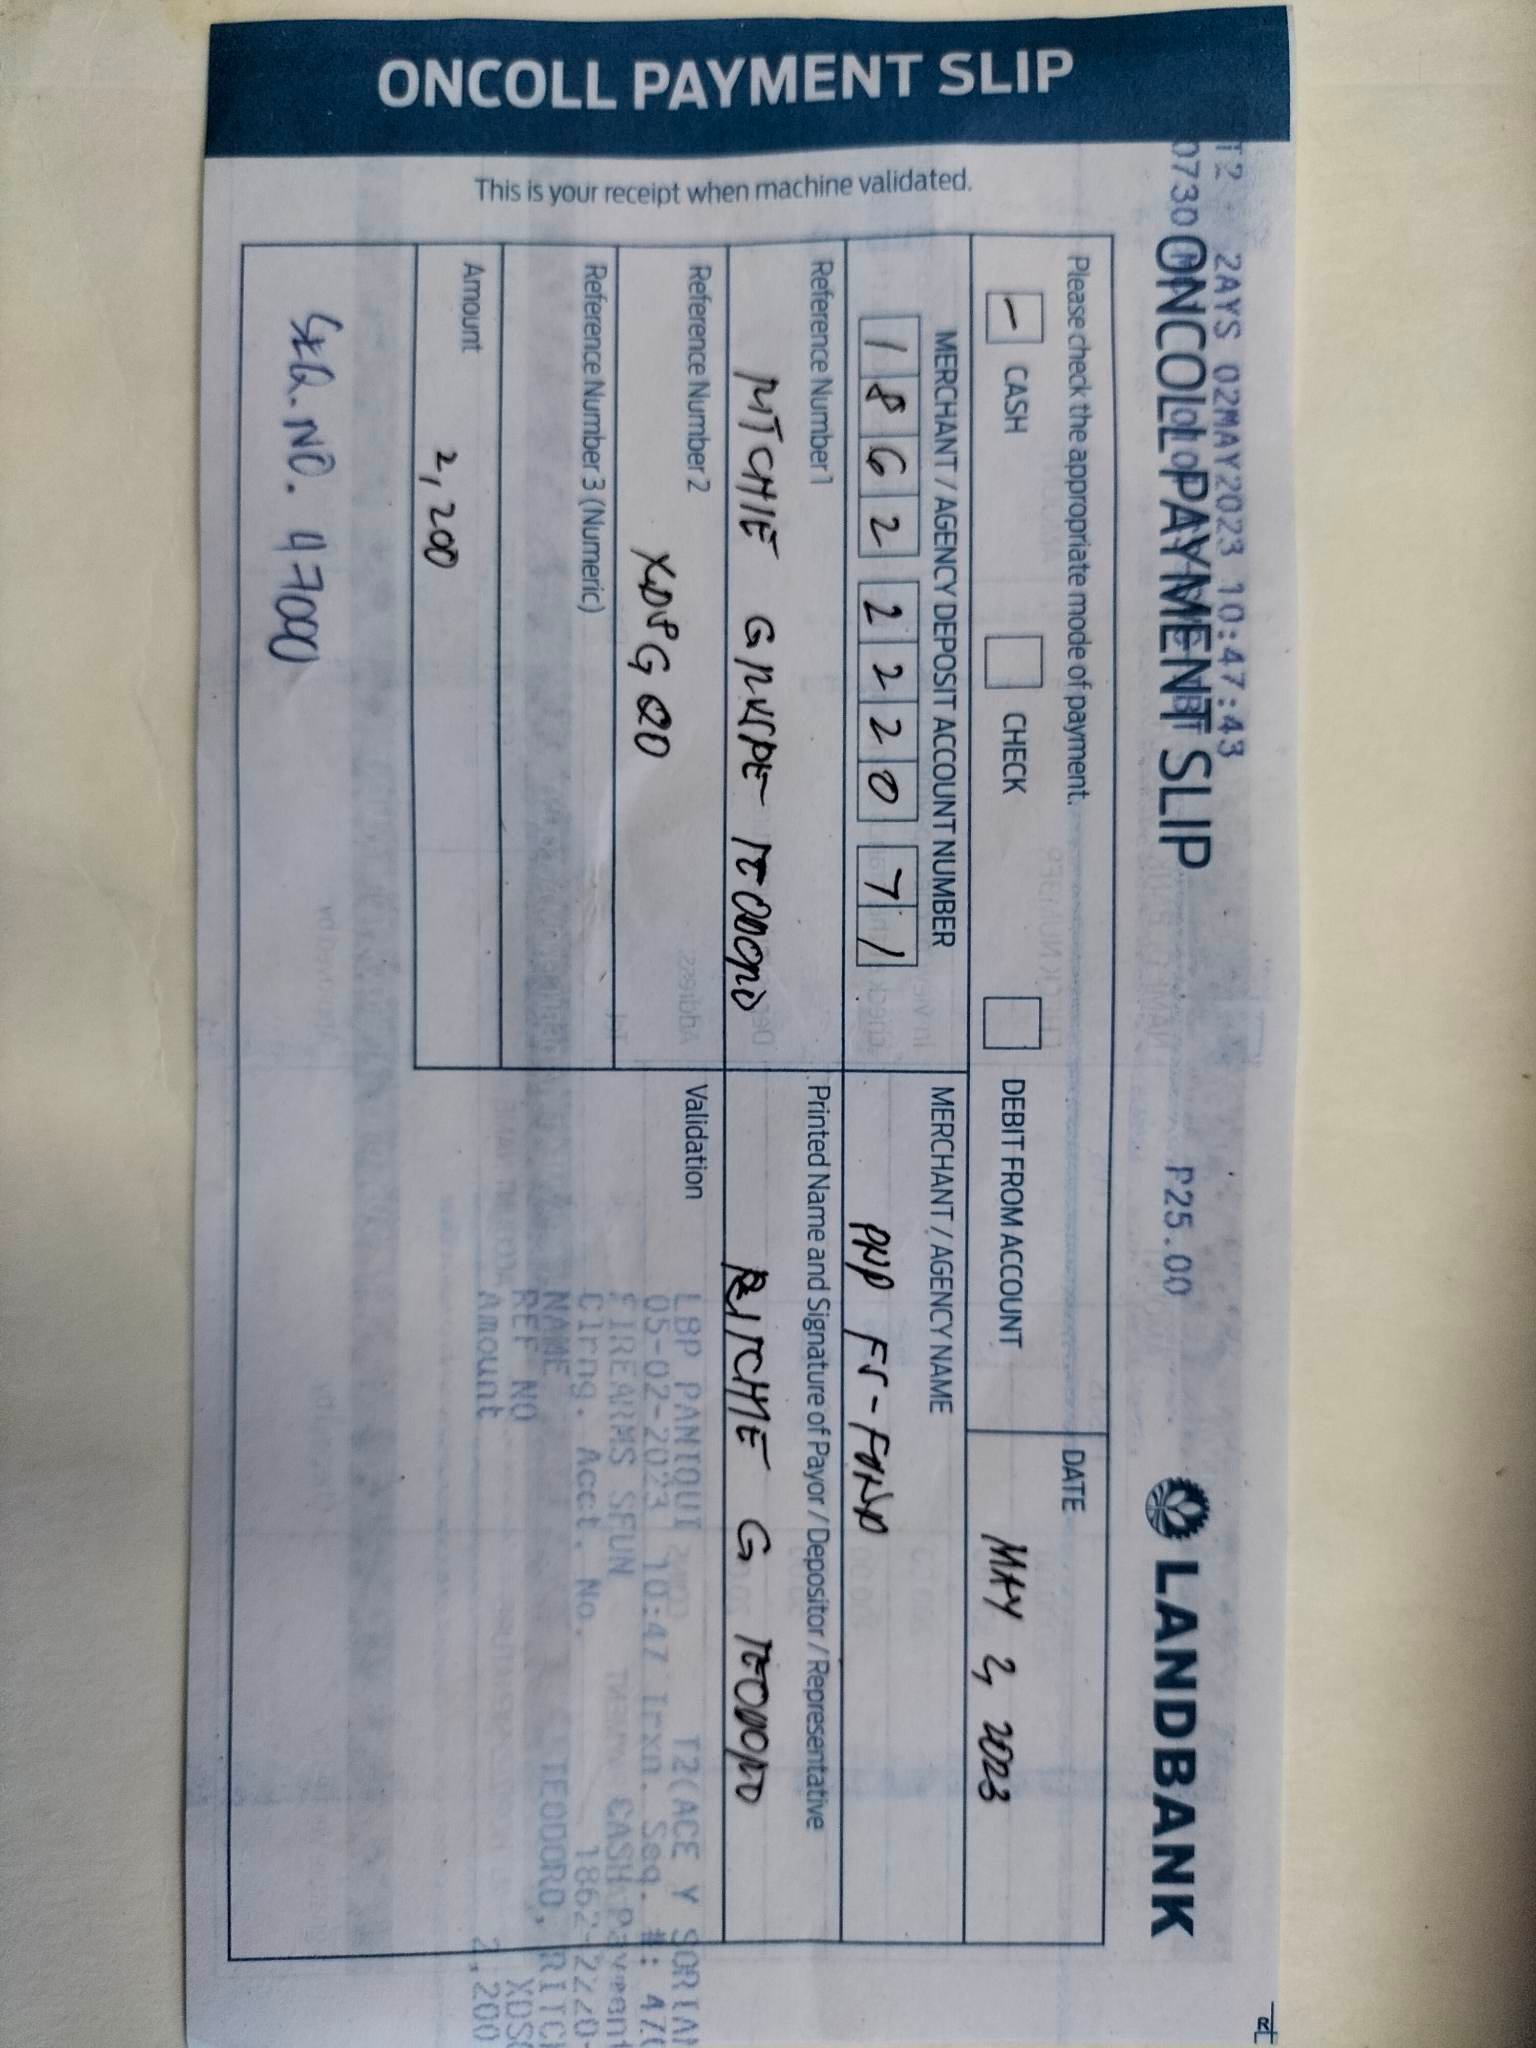 ONCOLL PAYMENT SLIP
This is your receipt when machine validated.
T2 2AYS 02MAY2023 10:47:43
0730 P25.00
ONCOLL PAYMENT SLIP
LANDBANK
Please check the appropriate mode of payment.
CASH
CHECK
DEBIT FROM ACCOUNT
DATE
MAY 2, 2023
MERCHANT / AGENCY DEPOSIT ACCOUNT NUMBER
1862 2220 71
MERCHANT / AGENCY NAME
PNP FS-FUND
Reference Number 1
RITCHIE GRUSPE TEODORO
Printed Name and Signature of Payor / Depositor / Representative
RITCHIE G TEODORO
Reference Number 2
Reference Number 3 (Numeric)
Amount
2,200
Validation
LBP PANIQUI T2(ACE Y SORIAN
05-02-2023 10:47 Trxn. Seq. #: 470
FIREARMS SFUN CASH Payment
Clrng. Acct. No. 1862-2220-
NAME TEODORO, RITCH
REF NO
Amount 2,200
SEQ. NO. 47000